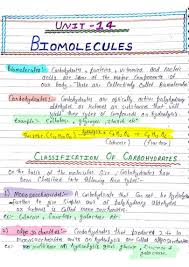 UNIT-14
BIOMOLECULES
Biomolecules:- Carbohydrates, proteins, vitamins and nucleic
acids are some of the major components of
our body. These are collectively called Biomolecules
Carbohydrates:- Carbohydrates are optically active polyhydroxy
aldehydes or ketones or substances that
yield these types of compounds on hydrolysis
Example:- Cellulose, glycogen, starch etc
Hydrolysis C6H12O6 + C6H12O6
(Glucose) (fructose)
CLASSIFICATION OF CARBOHYDRATES
On the basis of the molecular size, Carbohydrates have
been classified into following types:-
1) Monosaccharides:- A Carbohydrate that can not be hydrolysed
further to give simpler unit of polyhydroxy aldehyde
or ketone is called monosaccharides.
ex:- Glucose, fructose, galactose
Oligosaccharides:- Carbohydrates that produced 2 to
monosaccharide units on hydrolysis are called oligosaccharides
ex:- on hydrolysis gives glucose,
galactose